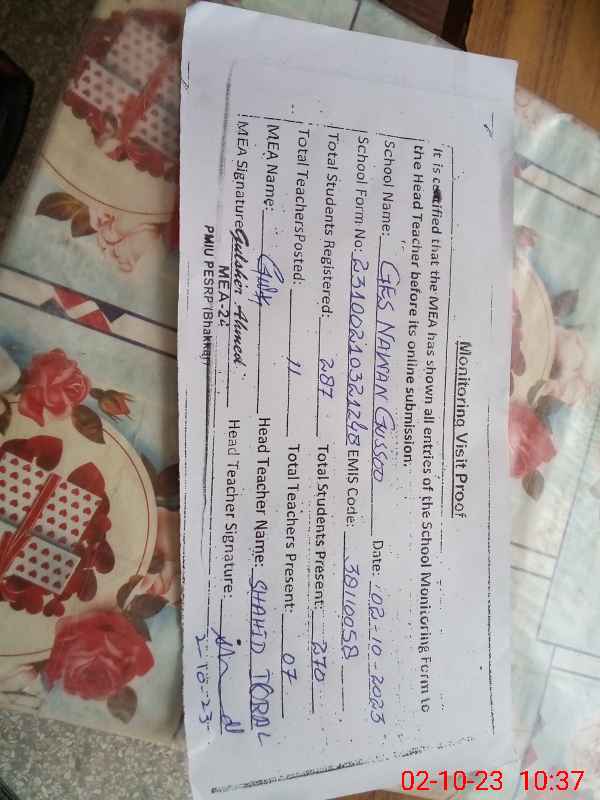 Monitoring Visit Proof
It is certified that the MEA has shown all entries of the School Monitoring Form to
the Head Teacher before its online submission.
School Name: GES NAWAN GUSSOO Date: 02-10-2023
School Form No: 23100210321248 EMIS Code: 38110058
Total Students Registered: 287 Total Students Present: 270
Total TeachersPosted: 11 Total Teachers Present: 07
MEA Name: Head Teacher Name: SHAHID IQBAL
MEA Signature Gulsher Ahmed Head Teacher Signature:
MEA-22
PMIU PESRP (Bhakkar)
2-10-23
02-10-23 10:37